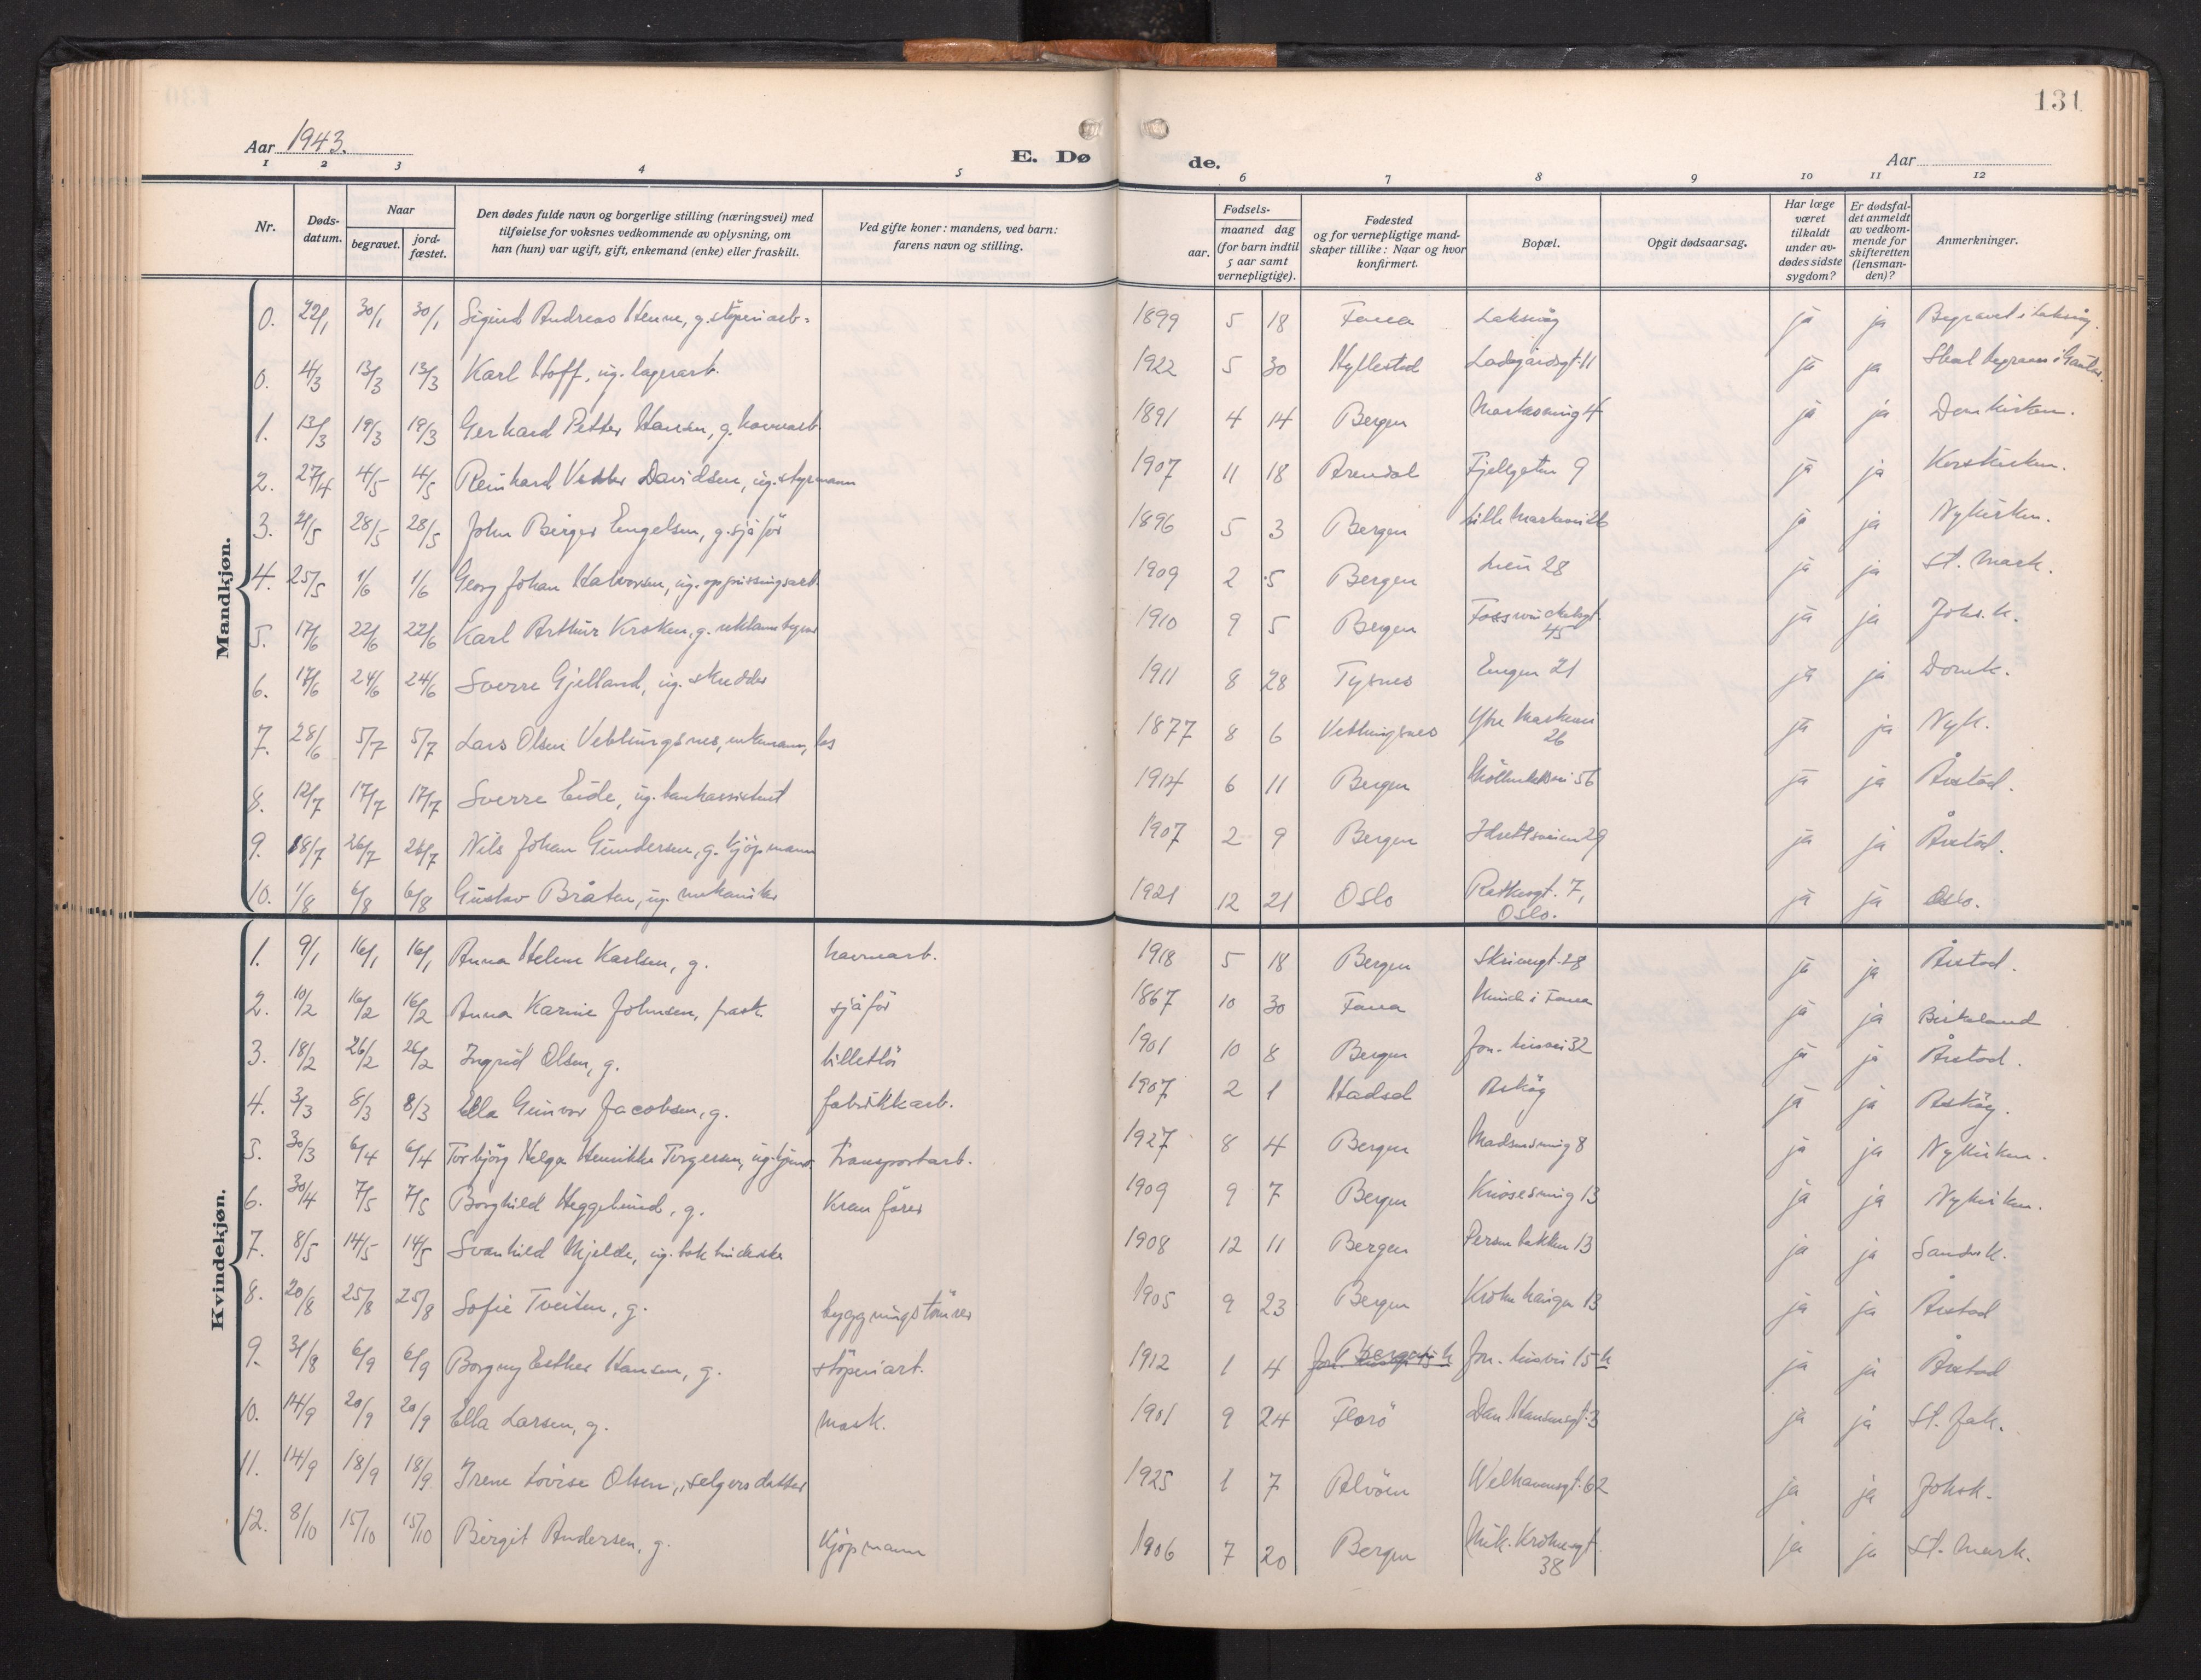 131
Aar 1943.
E. Dø
de.
Aar
1 2 3 4 5 6 7 8 9 10 11 12
Nr.
Døds-
datum.
Naar
begravet.
jord-
fæstet.
Den dødes fulde navn og borgerlige stilling (næringsvei) med
tilføielse for voksnes vedkommende av oplysning, om
han (hun) var ugift, gift, enkemand (enke) eller fraskilt.
Ved gifte koner: mandens, ved barn:
farens navn og stilling.
Fødsels-
aar.
maaned dag
(for barn indtil
5 aar samt
vernepligtige).
Fødested
og for vernepligtige mand-
skaper tillike: Naar og hvor
konfirmert.
Bopæl.
Opgit dødsaarsag.
Har læge
været
tilkaldt
under av-
dødes sidste
sygdom?
Er dødsfal-
det anmeldt
av vedkom-
mende for
skifteretten
(lensman-
den)?
Anmerkninger.
Mandkjøn.
0. 22/1 30/1 30/1 Sigurd Andreas Henne, g. støperiarb. 1899 5 18 Fana Laksvåg ja ja Begravet i Laksvåg.
0. 4/3 13/3 13/3 Karl Hoff, ug. lagerarb. 1922 5 30 Hyllestad Ladegårdsgt. 11 ja ja Skal begraves i
1. 13/3 19/3 19/3 Gerhard Petter Hansen, g. havnearb. 1891 4 14 Bergen 4 ja ja Domkirken.
2. 27/4 4/5 4/5 Reinhard Davidsen, ug. styrmann 1907 11 18 Arendal Fjellgaten 9 ja ja Korskirken.
3. 21/5 28/5 28/5 John Birger Engelsen, g. sjåfør 1896 5 3 Bergen Lille Markevei 26 ja ja Nykirken.
4. 25/5 1/6 1/6 Georg Johan Halvorsen, ug. oppussingsarb. 1909 2 5 Bergen Lien 28 ja ja St. Mark.
5. 17/6 22/6 22/6 Karl Arthur Kroken, g. 1910 9 5 Bergen Fosswinckelsgt.
45 ja ja Johs. k.
6. 17/6 24/6 24/6 Sverre Gjelland, ug. skredder 1911 8 28 Tysnes Engen 21 ja ja Domk.
7. 28/6 5/7 5/7 Lars Olsen Veblungsnes, enkemann, los 1877 8 6 Veblungsnes Ytre Markevei
26 ja ja Nyk.
8. 12/7 17/7 17/7 Sverre Eide, ug. bankassistent 1914 6 11 Bergen 56 ja ja Årstad.
9. 18/7 26/7 26/7 Nils Johan Gundersen, g. kjøpmann 1907 2 9 Bergen Idrettsveien 29 ja ja Årstad.
10. 1/8 6/8 6/8 Gustav Bråten, ug. mekaniker 1921 12 21 Oslo Rathkesgt. 7,
Oslo. ja ja Oslo.
Kvindekjøn.
1. 9/1 16/1 16/1 Anna Helene Karlsen, g. havnearb. 1918 5 18 Bergen Skriversgt. 28 ja ja Årstad.
2. 10/2 16/2 16/2 Anna Karine Johnsen, frask. sjåfør 1867 10 30 Fana i Fana ja ja Birkeland
3. 18/2 26/2 26/2 Ingrid Olsen, g. billettør 1901 10 8 Bergen Jon. Liesvei 32 ja ja Årstad.
4. 3/3 8/3 8/3 Ella Gunvor Jacobsen, g. fabrikkarb. 1907 2 1 Hadsel Askøy ja ja Askøy.
5. 30/3 6/4 6/4 Torbjørg Helga Henrikke Torgersen, ug. transportarb. 1927 8 4 Bergen Madsensmug 8 ja ja Nykirken.
6. 30/4 7/5 7/5 Borghild Heggelund, g. Kranfører 1909 9 7 Bergen 13 ja ja Nykirken.
7. 8/5 14/5 14/5 Svanhild Mjelde, ug. bokbinderske 1908 12 11 Bergen Persenbakken 13 ja ja Sandvik.
8. 20/8 25/8 25/8 Sofie Tveiten, g. bygningstømrer 1905 9 23 Bergen Krohnhaugen 13 ja ja Årstad
9. 31/8 6/9 6/9 Borgny Esther Hansen, g. støperiarb. 1912 1 4 Bergen Jon. Liesvei 15 ja ja Årstad
10. 14/9 20/9 20/9 Ella Larsen, g. mask. 1901 9 24 Florø Dan Hansensgt. 3 ja ja St. Jak.
11. 14/9 18/9 18/9 Irene Lovise Olsen, selgers datter 1925 1 7 Alvøen Welhavensgt. 62 ja ja Johsk.
12. 8/10 15/10 15/10 Birgit Andersen, g. kjøpmann 1906 7 20 Bergen Mik. Krohnsgt.
38 ja ja St. Mark.